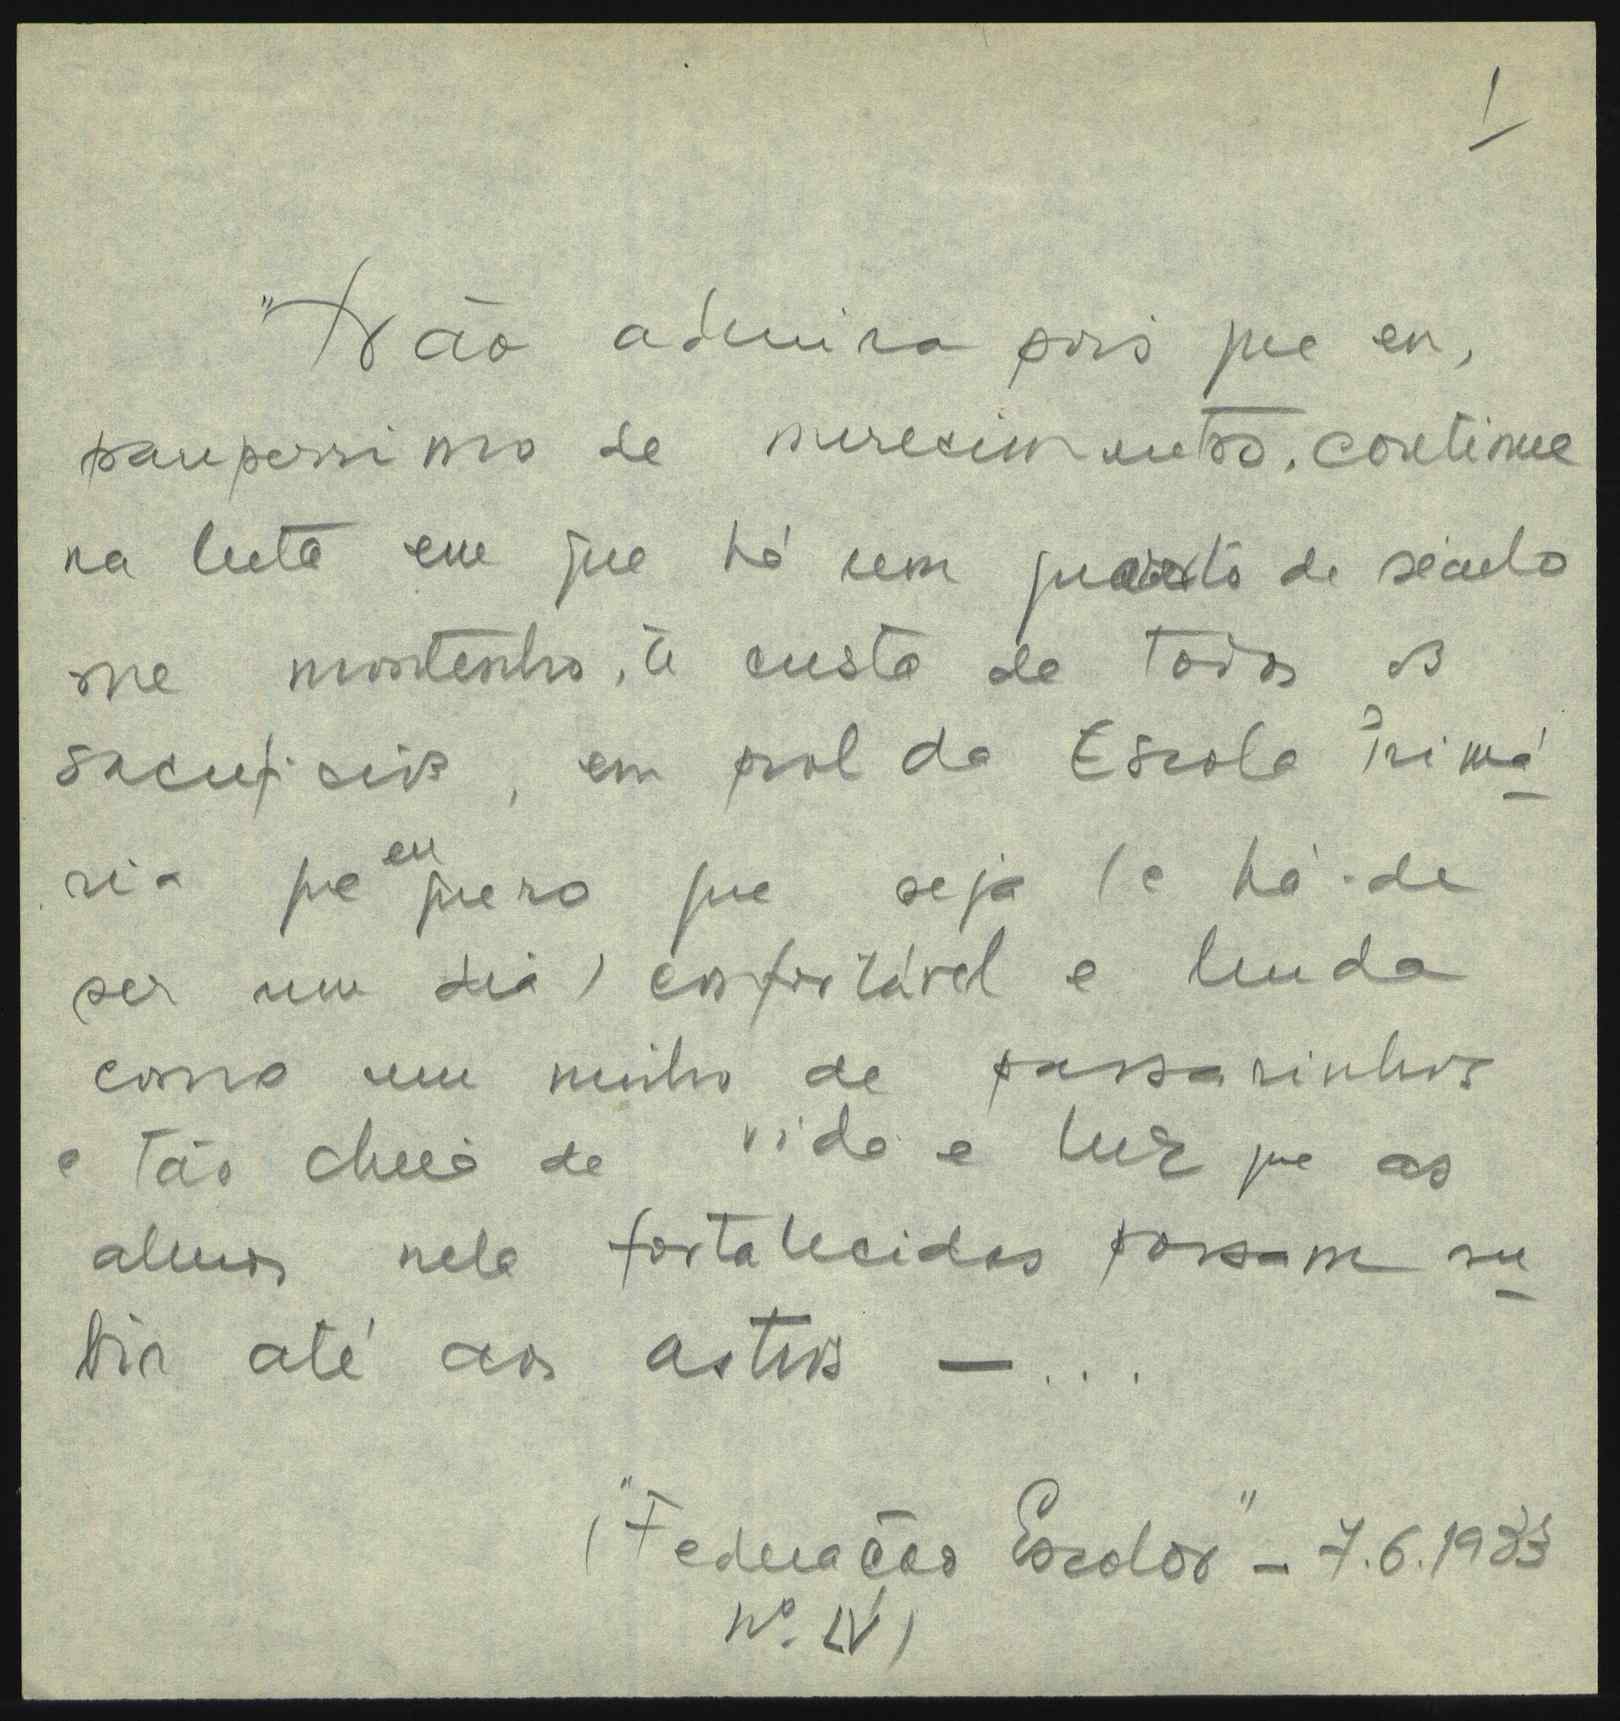 1
"Não admira pois que eu,
pauperrimo de merecimento, continue
na luta em que há um quarto de século
me mantenho, à custa de todos os
sacrificios, em prol da Escola Primá
ria que eu quero que seja (e há-de
ser um dia) confortável e linda
como um ninho de passarinhos
e tão cheia de vida e luz que as
almas nela fortalecidas possam su
bir até aos astros — ...
("Federação Escolar" - 7.6.1933
Nº. LV)